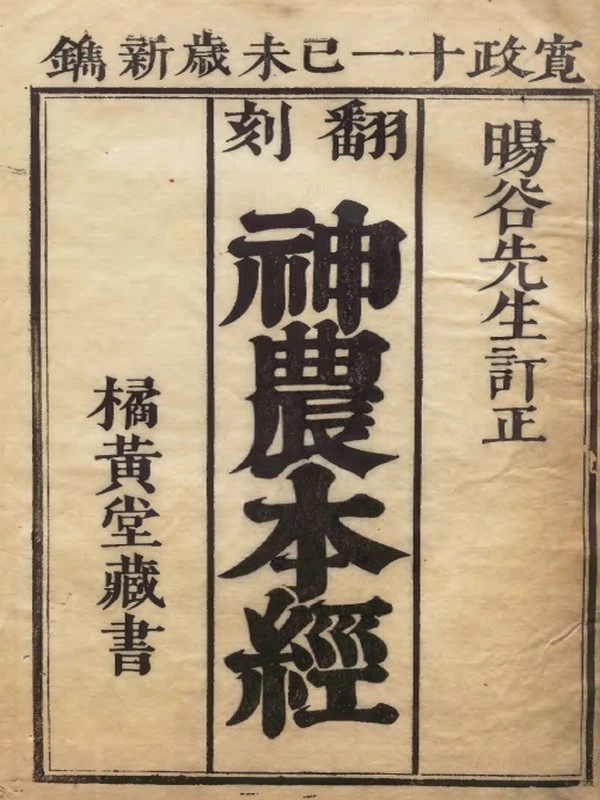 寛政十一己未歳新鐫
暘谷先生訂正
翻刻
神農本經
橘黄堂藏書